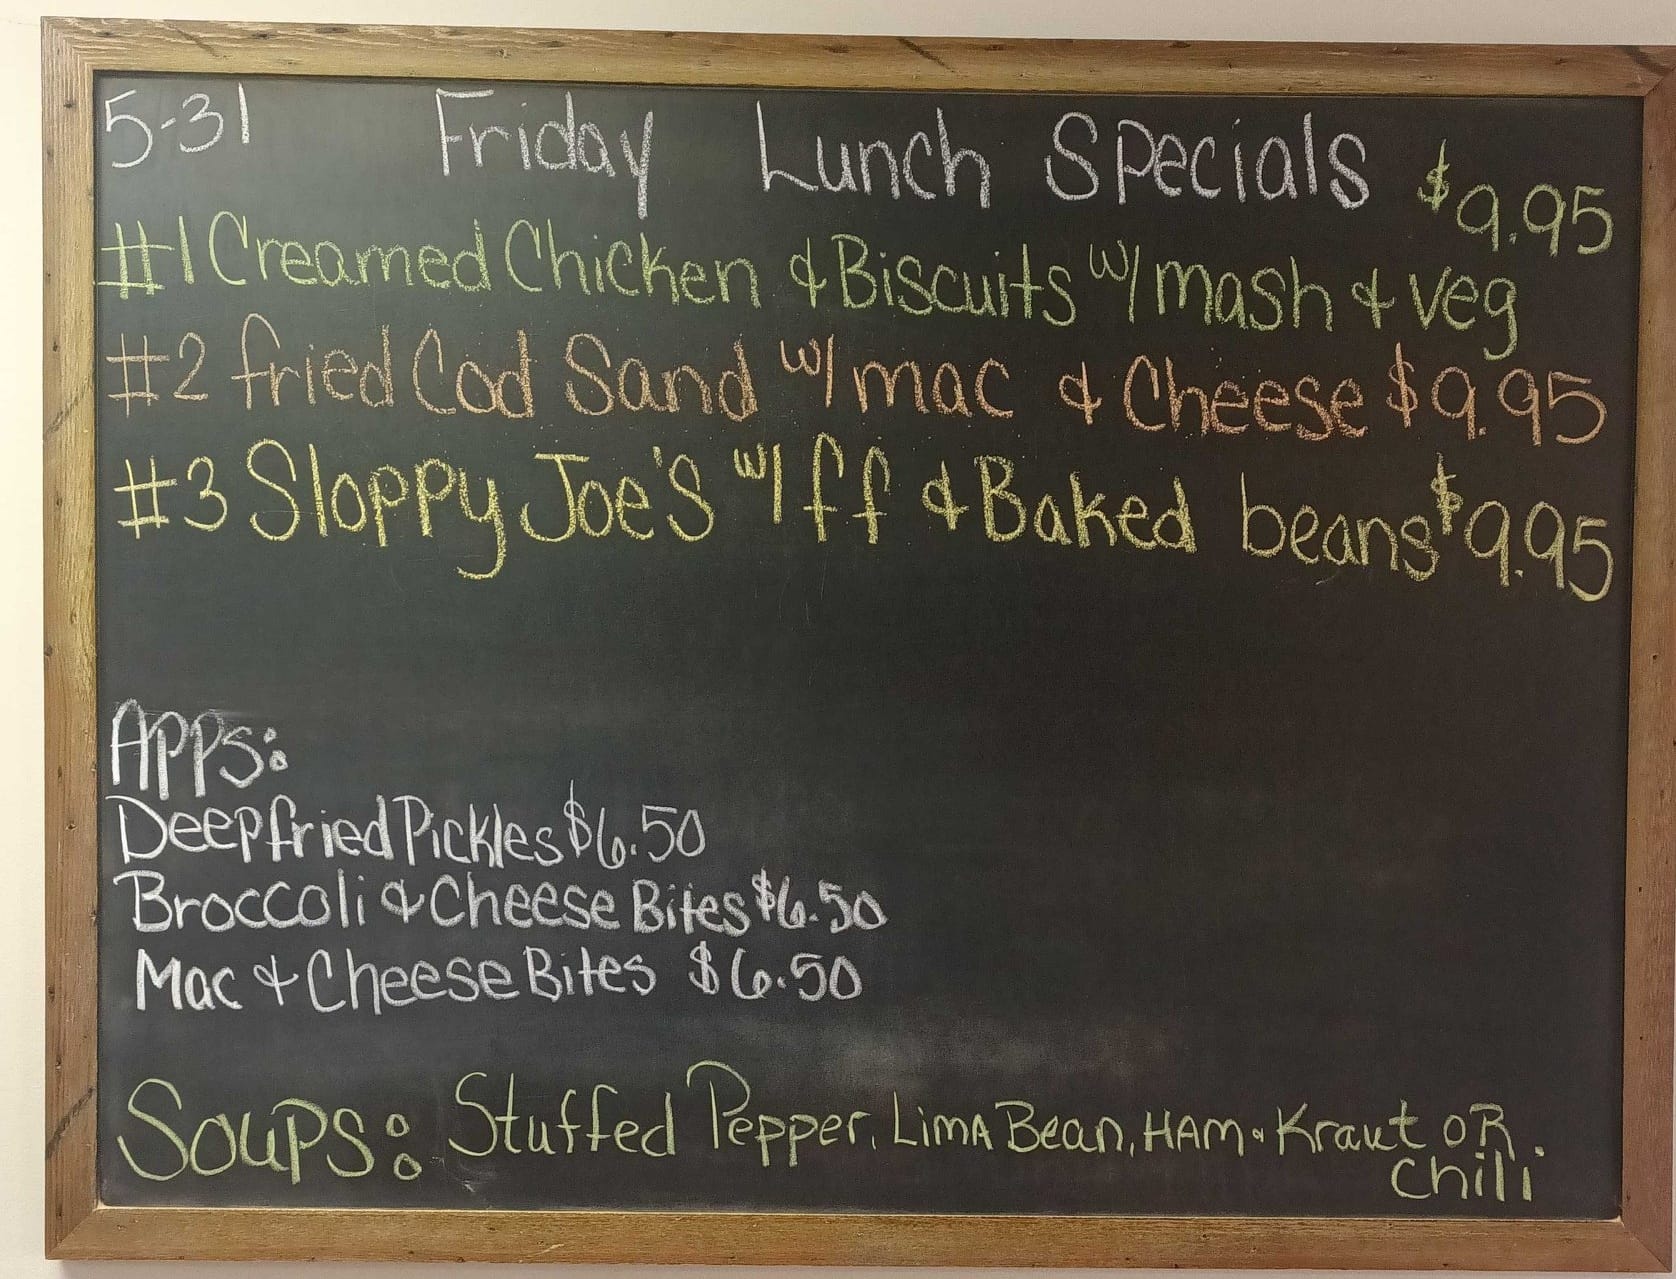 5-31 Friday Lunch Specials
$9.95
#1 Creamed Chicken & Biscuits w/ mash & veg
#2 fried Cod Sand w/ mac & Cheese $9.95
#3 Sloppy Joe's w/ ff & Baked beans $9.95
Apps:
Deepfried Pickles $6.50
Broccoli & Cheese Bites $6.50
Mac & Cheese Bites $6.50
Soups: Stuffed Pepper, Lima Bean, HAM & Kraut OR
Chili